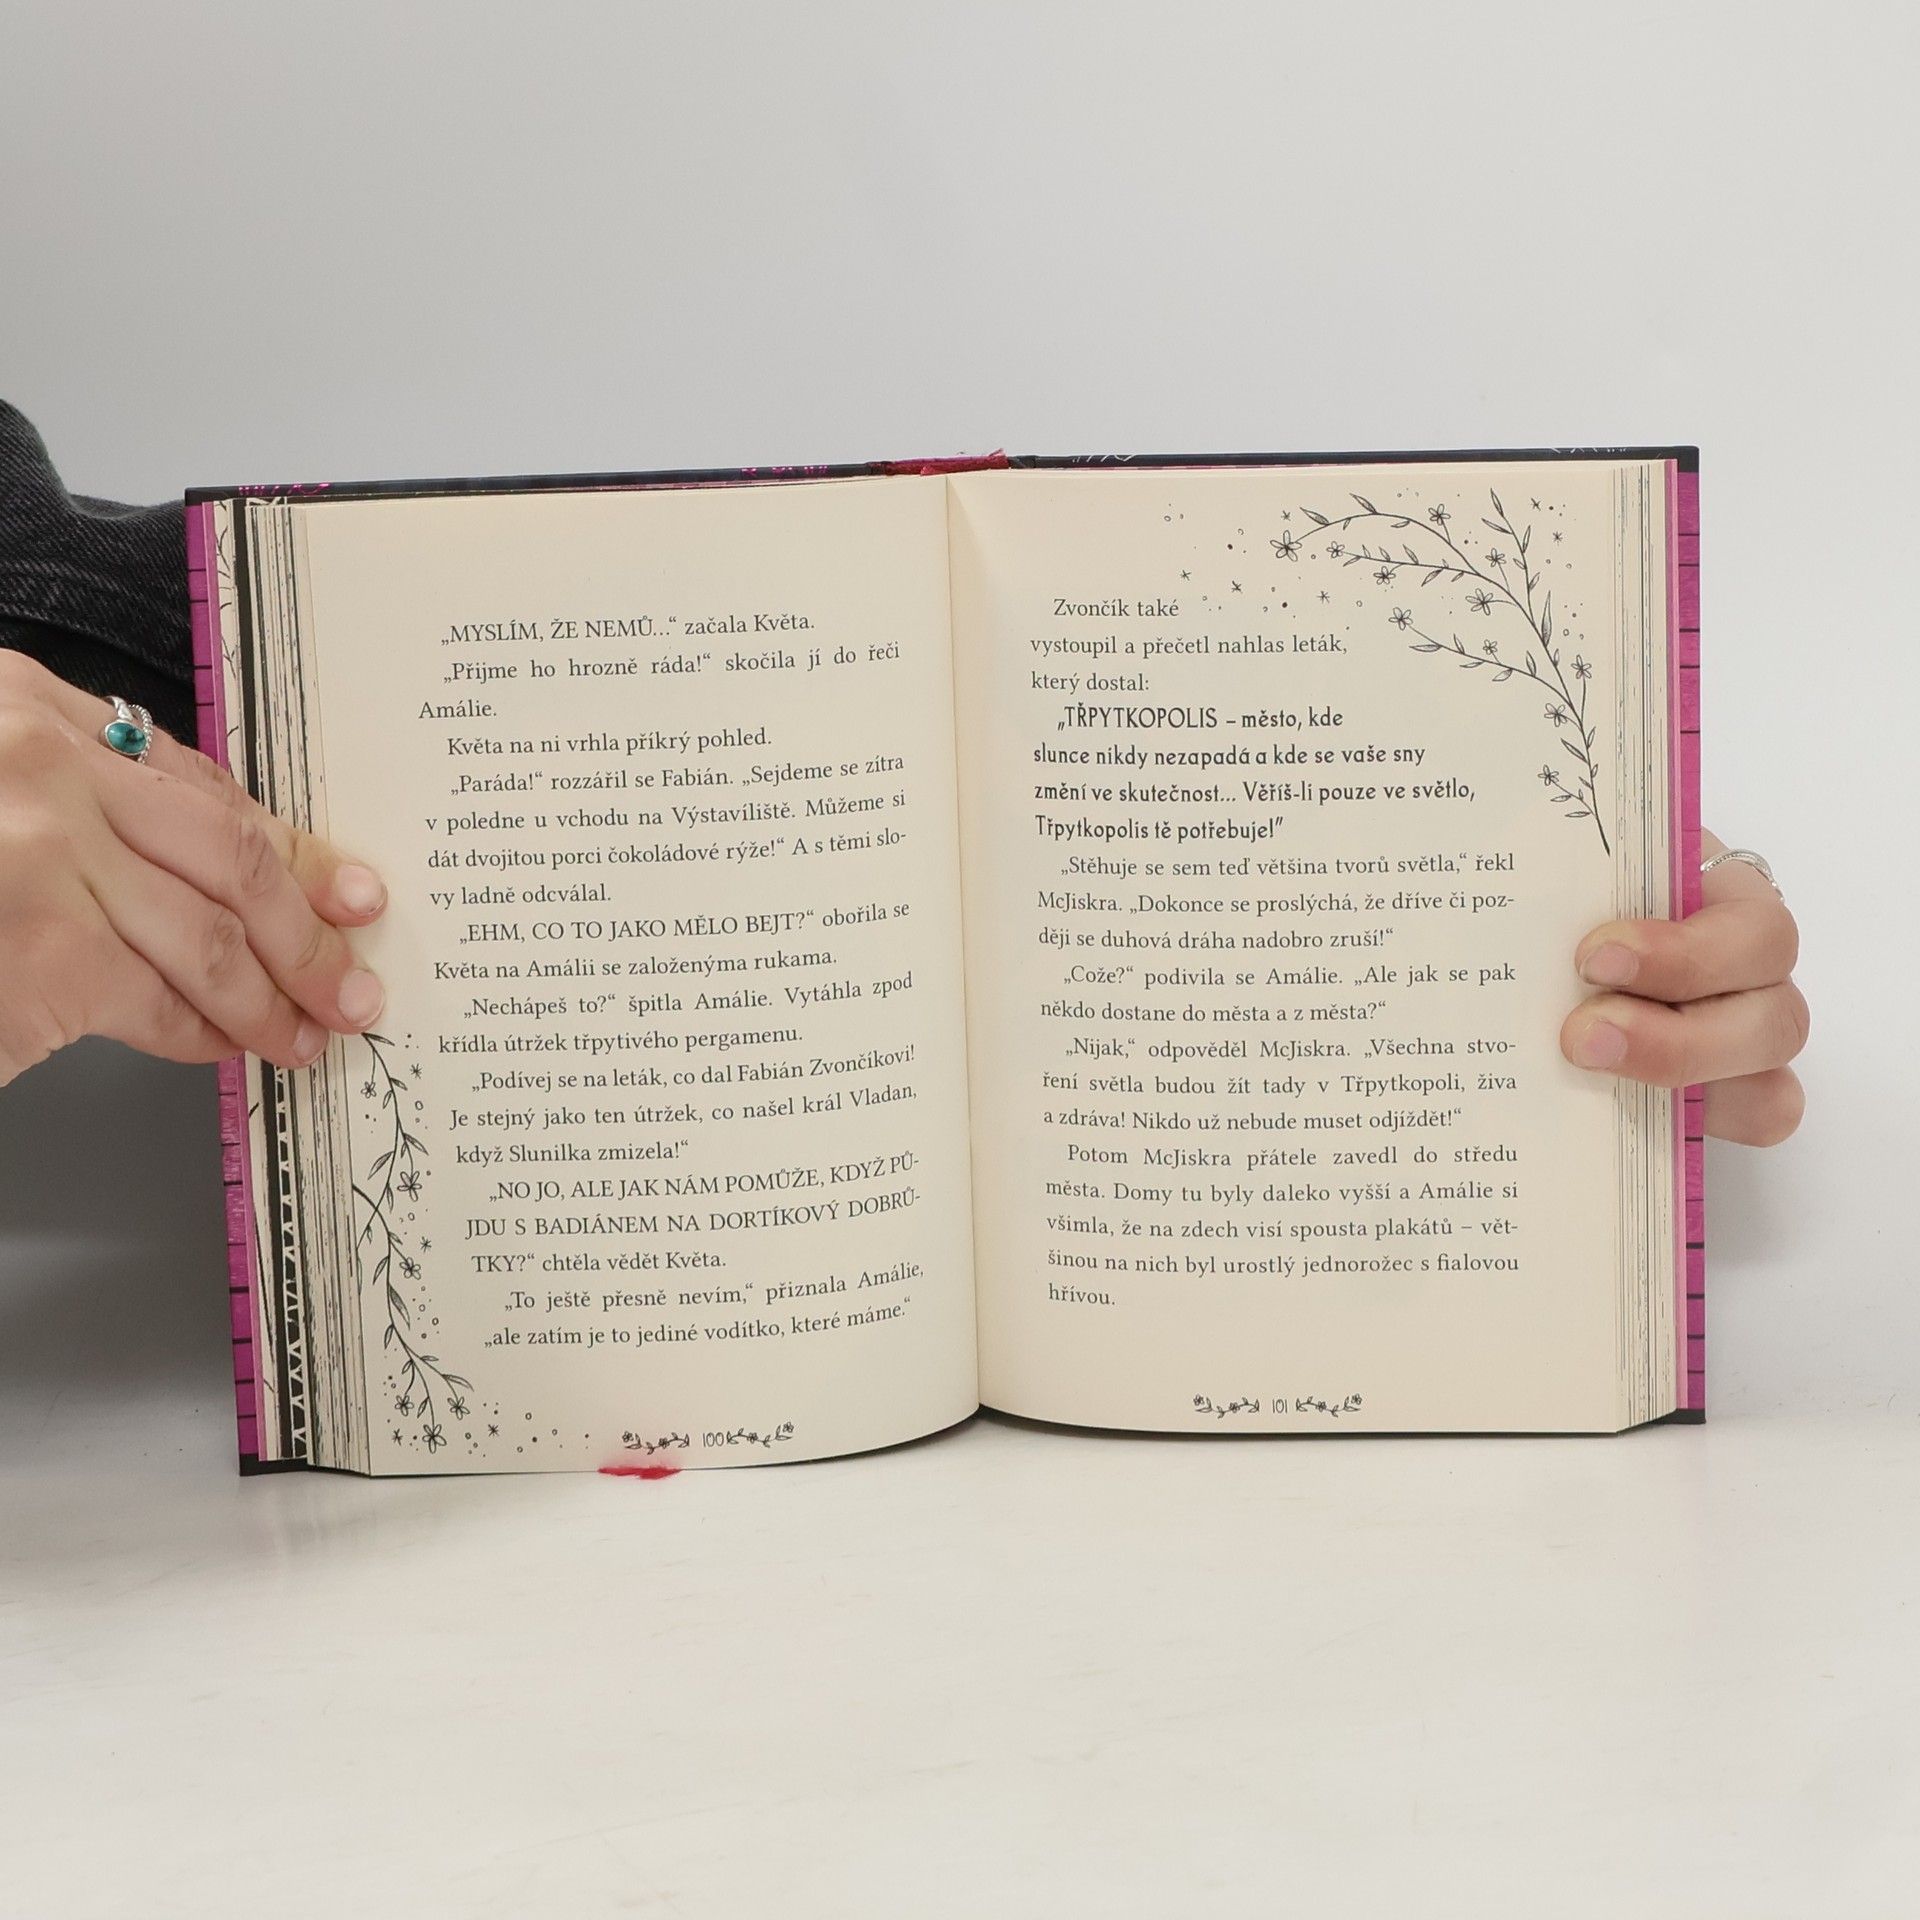 „MYSLÍM, ŽE NEMŮ...“ začala Květa.
„Přijme ho hrozně ráda!“ skočila jí do řeči
Amálie.
Květa na ni vrhla příkrý pohled.
„Paráda!“ rozzářil se Fabián. „Sejdeme se zítra
v poledne u vchodu na Výstavíliště. Můžeme si
dát dvojitou porci čokoládové rýže!“ A s těmi slo-
vy ladně odcválal.
„EHM, CO TO JAKO MĚLO BEJT?“ obořila se
Květa na Amálii se založenýma rukama.
„Nechápeš to?“ špitla Amálie. Vytáhla zpod
křídla útržek třpytivého pergamenu.
„Podívej se na leták, co dal Fabián Zvončíkovi!
Je stejný jako ten útržek, co našel král Vladan,
když Slunilka zmizela!“
„NO JO, ALE JAK NÁM POMŮŽE, KDYŽ PŮ-
JDU S BADIÁNEM NA DORTÍKOVÝ DOBRŮ-
TKY?“ chtěla vědět Květa.
„To ještě přesně nevím,“ přiznala Amálie,
„ale zatím je to jediné vodítko, které máme.“
100
Zvončík také
vystoupil a přečetl nahlas leták,
který dostal:
„TŘPYTKOPOLIS – město, kde
slunce nikdy nezapadá a kde se vaše sny
změní ve skutečnost... Věříš-li pouze ve světlo,
Třpytkopolis tě potřebuje!”
„Stěhuje se sem teď většina tvorů světla,“ řekl
McJiskra. „Dokonce se proslýchá, že dříve či poz-
ději se duhová dráha nadobro zruší!“
„Cože?“ podivila se Amálie. „Ale jak se pak
někdo dostane do města a z města?“
„Nijak,“ odpověděl McJiskra. „Všechna stvo-
ření světla budou žít tady v Třpytkopoli, živa
a zdráva! Nikdo už nebude muset odjíždět!“
Potom McJiskra přátele zavedl do středu
města. Domy tu byly daleko vyšší a Amálie si
všimla, že na zdech visí spousta plakátů – vět-
šinou na nich byl urostlý jednorožec s fialovou
hřívou.
101